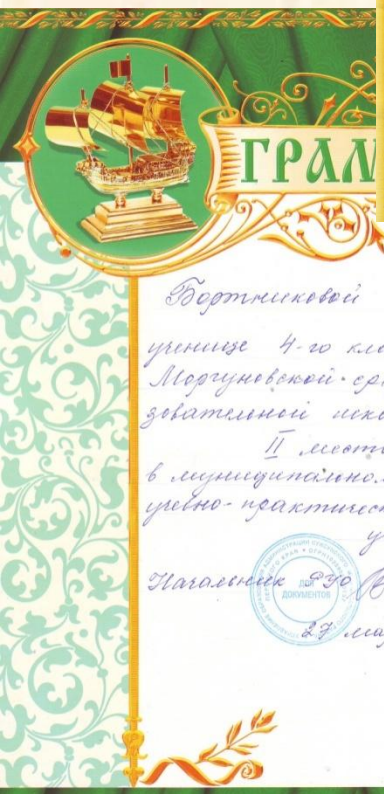 ГРАМ
Бортниковой
ученице 4-го кла
Моргуновской сре
зовательной шко
II место
в муниципальном
учебно-практичес
у
Начальник РУО
ДЛЯ
ДОКУМЕНТОВ
27 ма